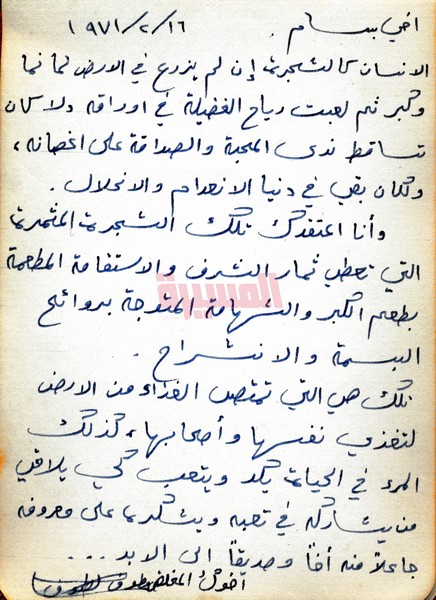 اخي بسام . ١٩٧١/٢/١٦
الانسان كالشجرة إن لم يزرع في الارض لما نما
وكبر ثم لعبت رياح الفضيلة في اوراقه ولا كان
تساقط ندى المحبة والصداقة على اغصانه ،
ولكان بقي في دنيا الانعدام والانحلال .
وأنا اعتقدك تلك الشجرة المثمرة
التي تعطي ثمار الشرف والاستقامة المطعمة
بطعم الكبر والشهامة الممتدجة بروائح
البسمة والانشراح .
المسيرة
تلك هي التي تمتص الغذاء من الارض
لتغذي نفسها وأصحابها ، كذلك
المرء في الحياة يكد ويتعب كي يلاقي
من يشاركه في تعبه ويشكره على معروفه
جاعلاً منه أخاً وصديقاً الى الابد ....
أخوك المخلص